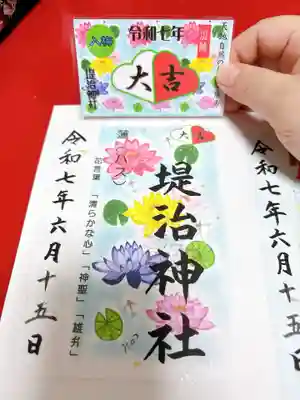 令和七年
入梅
大吉
堤治神社
天地自然の
大吉
蓮(ハス)
花言葉 「清らかな心」「神聖」「雄弁」
堤治神社
令和七年六月十五日
令和七年六月十五日